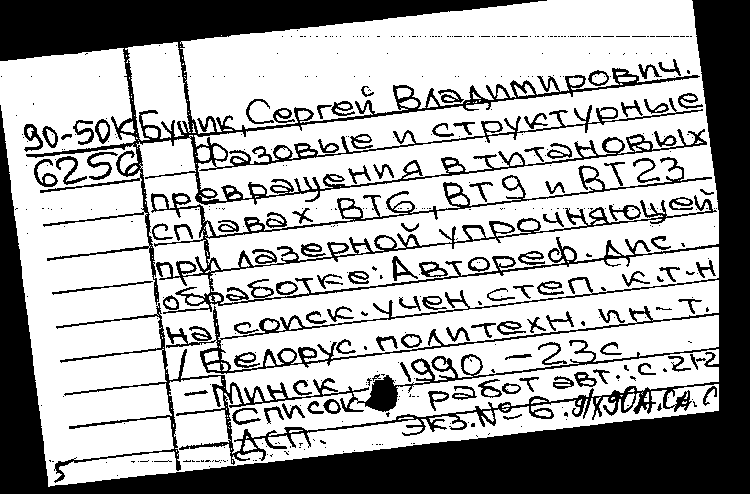 90-50К Бушик, Сергей Владимирович.
6256 Фазовые и структурные
превращения в титановых
сплавах ВТ6, ВТ9 и ВТ23
при лазерной упрочняющей
обработке: Автореф. дис.
на соиск. учен. степ. к.т.н
/ Белорус. политехн. ин-т.
- Минск, 1990. - 23с.
Список работ авт.: с. 21-2
ДСП. Экз. № 6.
5